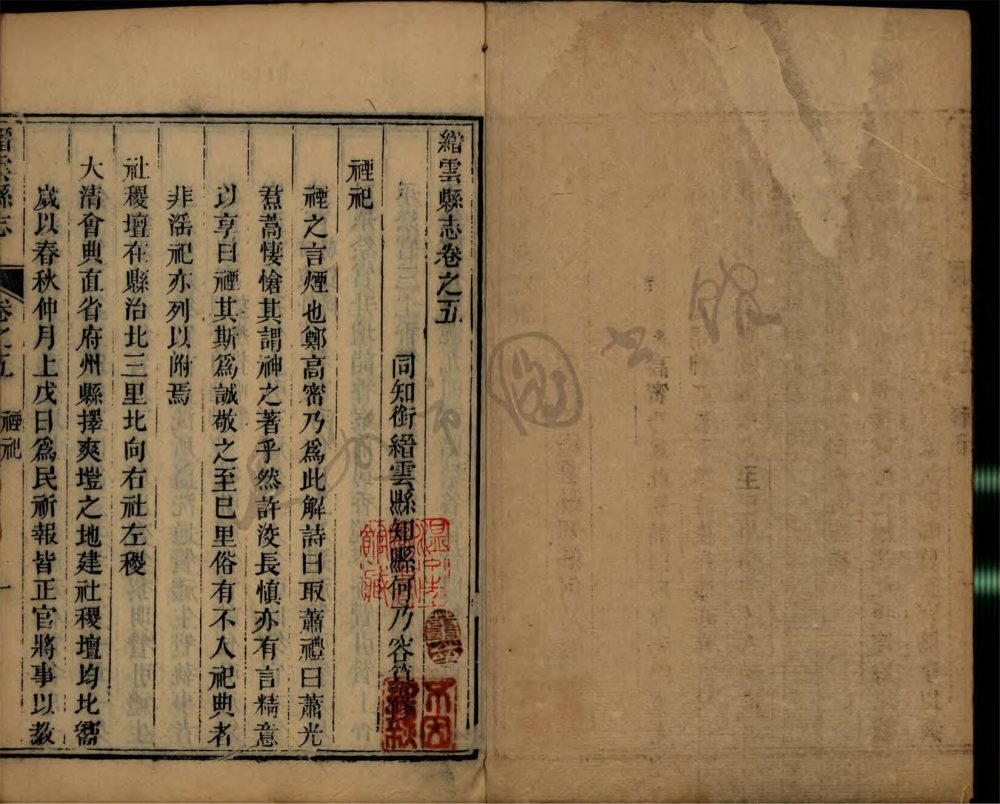 縉雲縣志卷之五
同知銜縉雲縣知縣何乃容
禋祀
禋之言煙也鄭高密乃爲此解詩曰取蕭禮曰蕭光
焄蒿悽愴其謂神之著乎然許洨長愼亦有言精意
以享曰禋其斯爲誠敬之至已里俗有不入祀典者
非滛祀亦列以附焉
社稷壇在縣治北三里北向右社左稷
大清會典直省府州縣擇爽塏之地建社稷壇均北嚮
歲以春秋仲月上戊日爲民祈報皆正官將事以敎
縉雲縣志
卷之五 禋祀 一